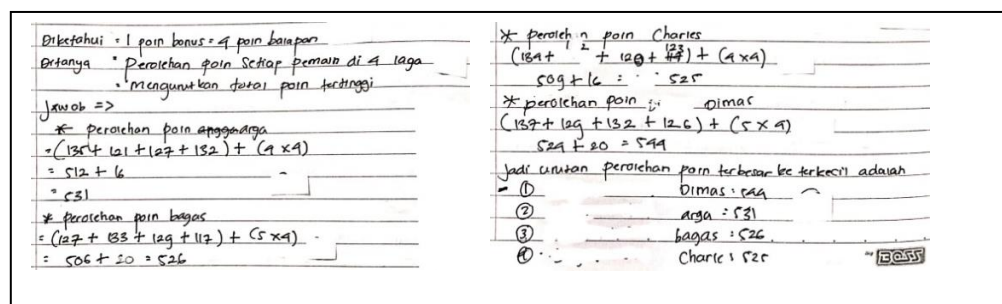 Diketahui = 1 poin bonus = 4 poin balapan
Ditanya • Perolehan poin Setiap pemain di 4 laga
• mengurutkan total poin tertinggi
Jawab =>
* perolehan poin arga
= (135 + 121 + 127 + 132) + (4 x 4)
= 512 + 16
= 531
* perolehan poin bagas
= (127 + 133 + 129 + 117) + (5 x 4)
= 506 + 20 = 526
* peroleh n poin Charles
(134 + 1 2 + 120 + 123) + (4 x 4)
509 + 16 = 525
* perolehan poin Dimas
(137 + 129 + 132 + 126) + (5 x 4)
524 + 20 = 544
Jadi urutan perolehan poin terbesar ke terkecil adalah
- ① Dimas : 544
② arga : 531
③ bagas : 526
④ Charles 525
BOSS